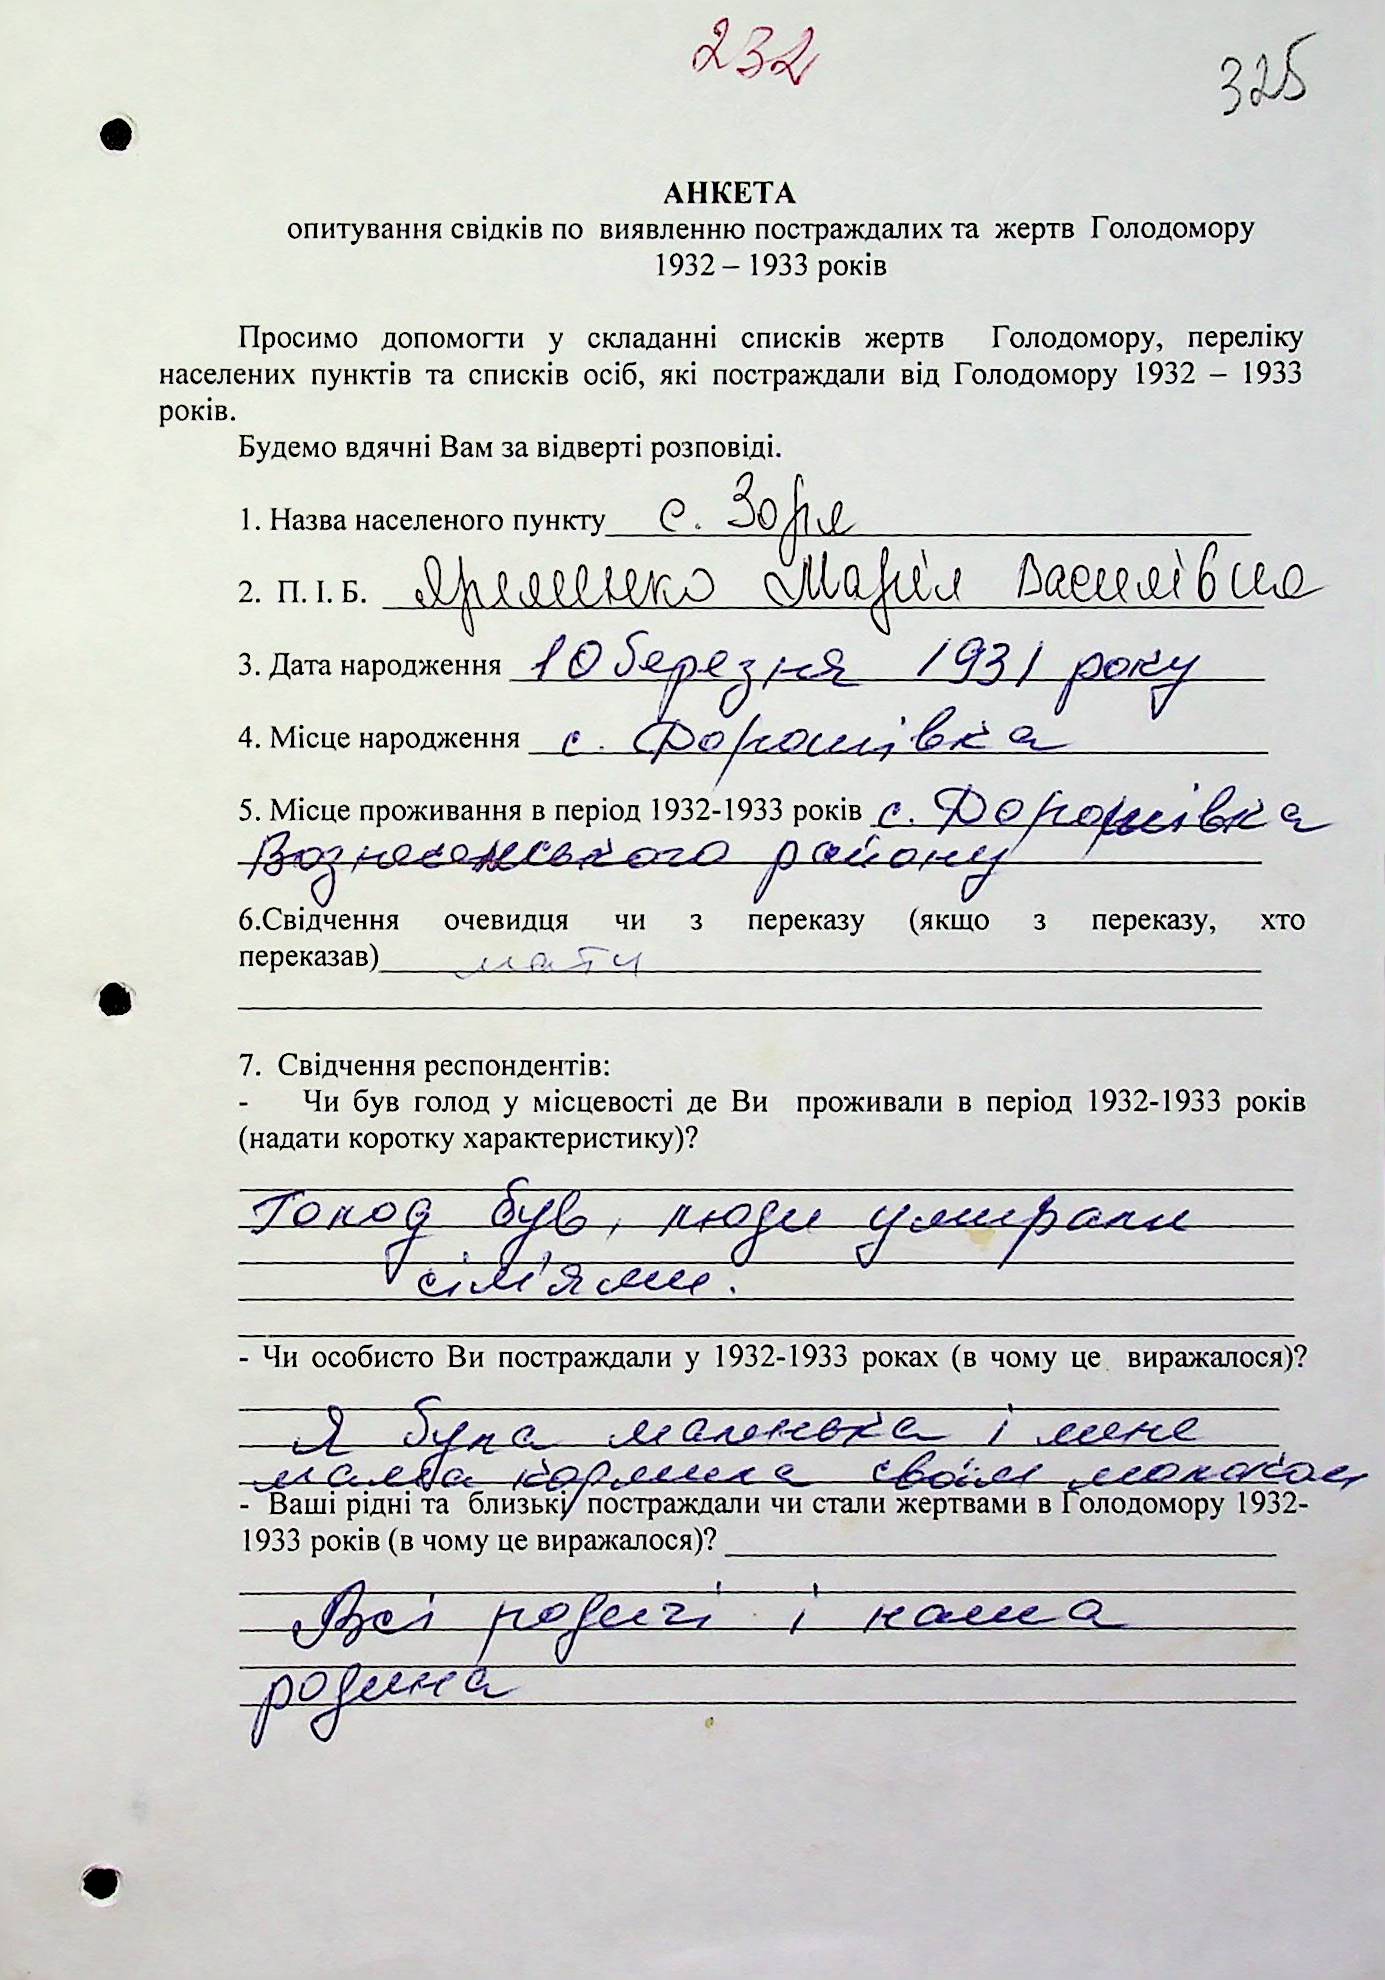 232
325
АНКЕТА
опитування свідків по виявленню постраждалих та жертв Голодомору
1932 – 1933 років
Просимо допомогти у складанні списків жертв Голодомору, переліку
населених пунктів та списків осіб, які постраждали від Голодомору 1932 – 1933
років.
Будемо вдячні Вам за відверті розповіді.
1. Назва населеного пункту с. Зоря
2. П. І. Б. Яременко Марія Василівна
3. Дата народження 10 березня 1931 року
4. Місце народження с. Дорошівка
5. Місце проживання в період 1932-1933 років с. Дорошівка
Вознесенського району
6.Свідчення очевидця чи з переказу (якщо з переказу, хто
переказав) мати
7. Свідчення респондентів:
- Чи був голод у місцевості де Ви проживали в період 1932-1933 років
(надати коротку характеристику)?
Голод був, люди умирали
сім'ями.
- Чи особисто Ви постраждали у 1932-1933 роках (в чому це виражалося)?
Я була маленька і мене
мама кормила своїм молоком
- Ваші рідні та близькі постраждали чи стали жертвами в Голодомору 1932-
1933 років (в чому це виражалося)?
Всі родичі і наша
родина